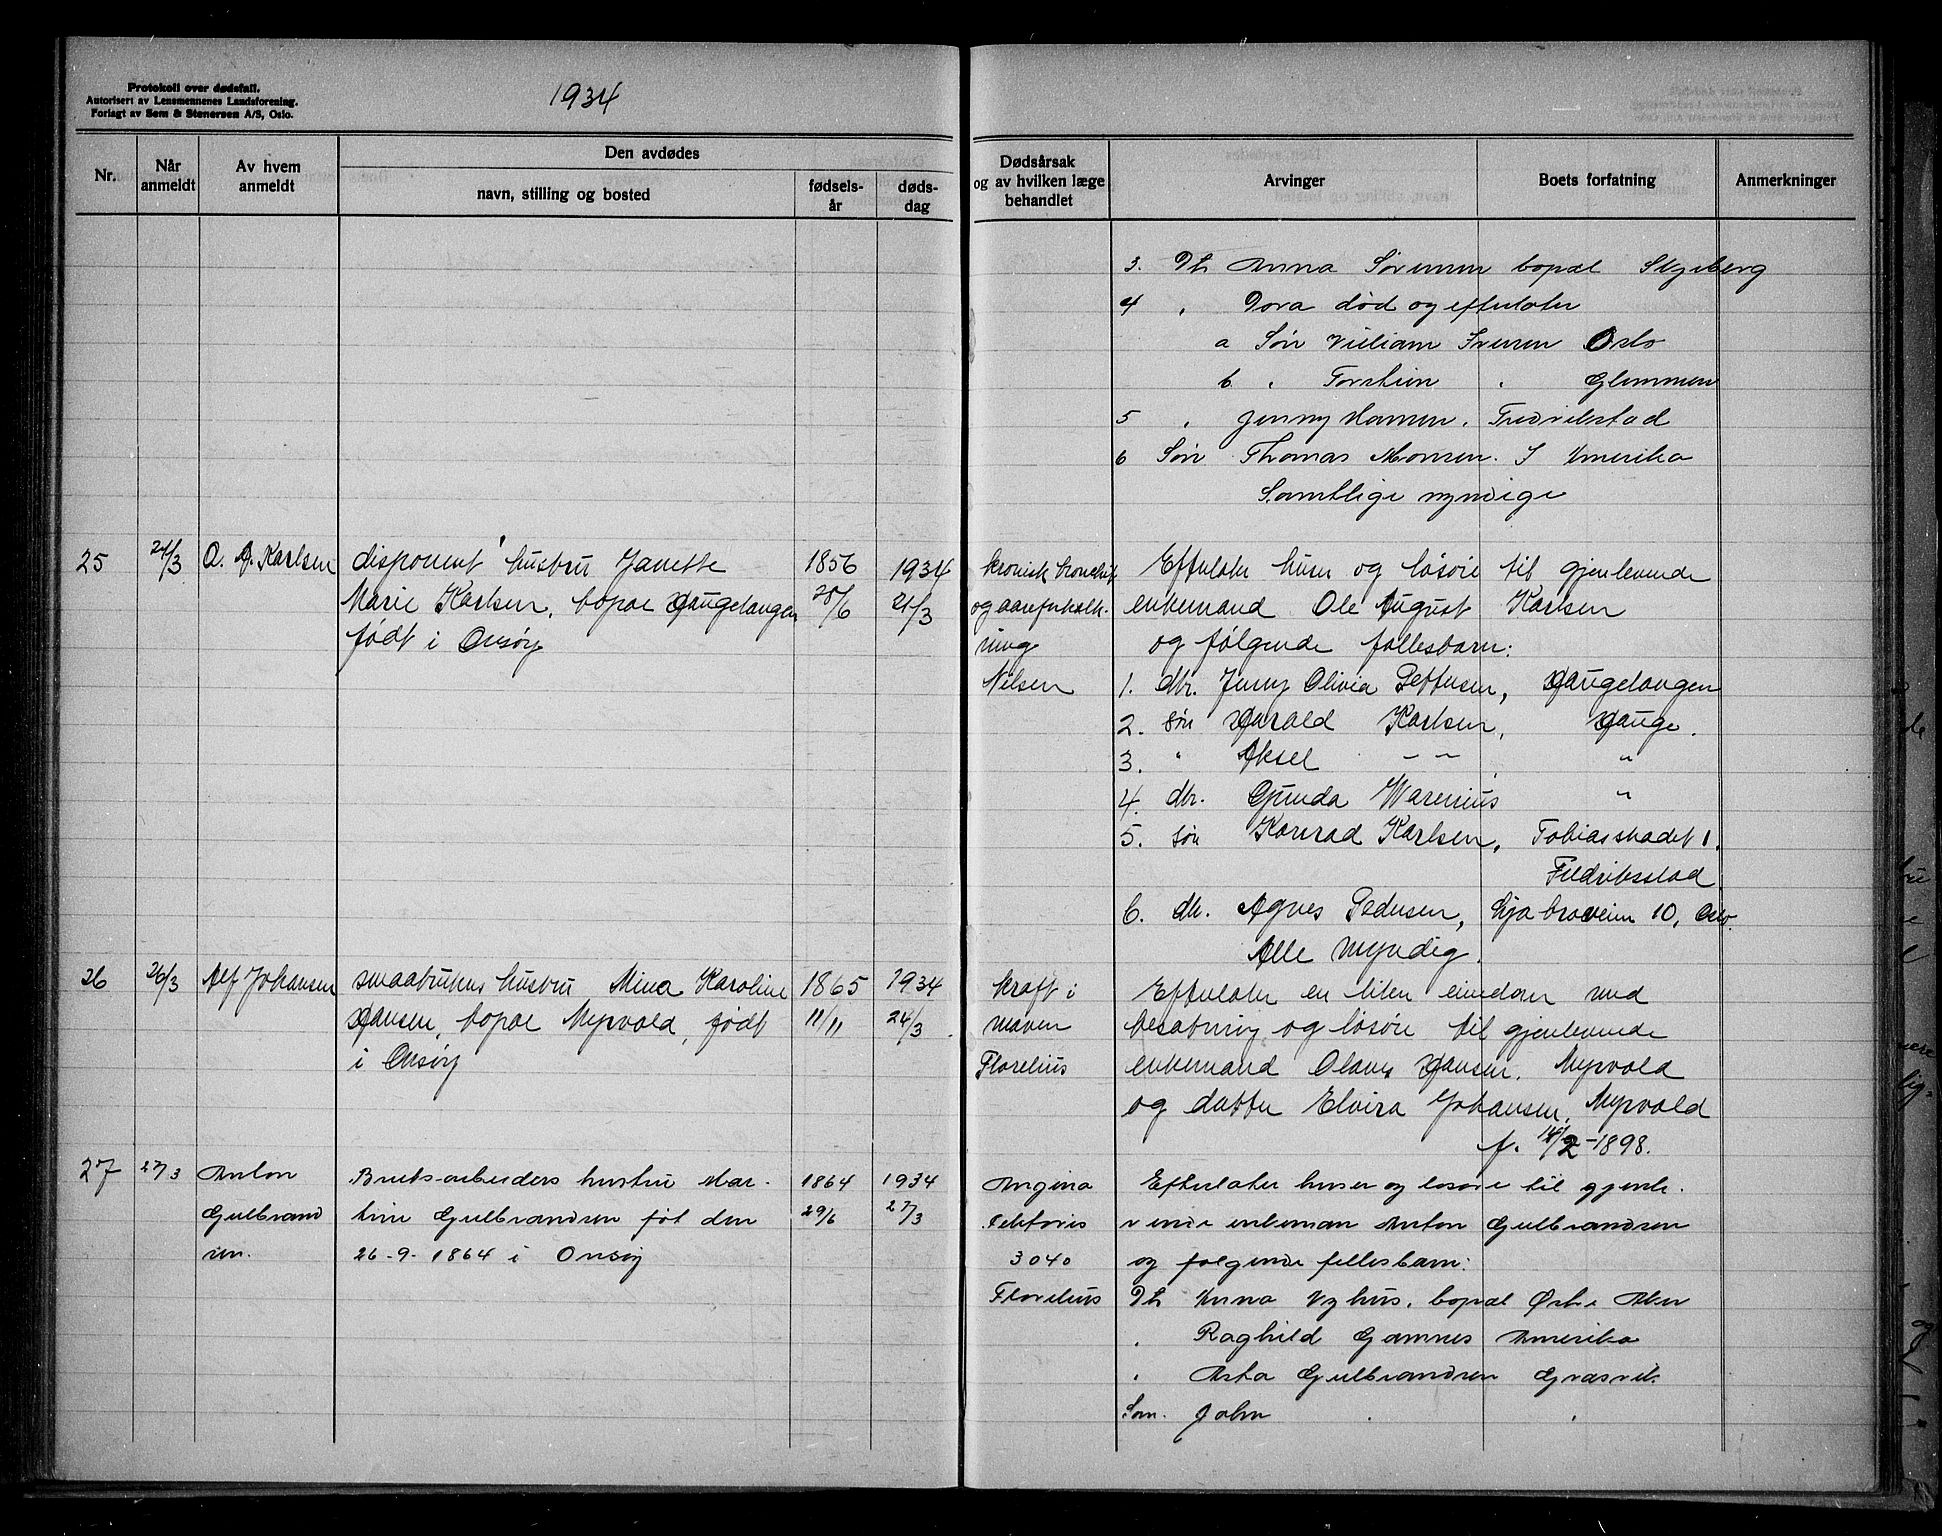 Protokoll over dødsfall.
Autorisert av Lensmennenes Landsforening.
Forlagt av Sem & Stenersen A/S, Oslo.
1934
Nr.
Når anmeldt
Av hvem anmeldt
Den avdødes
navn, stilling og bosted
fødsels-år
døds-dag
Dødsårsak og av hvilken læge behandlet
Arvinger
Boets forfatning
Anmerkninger
3. Dt Anna Sørensen bopæl Skjeberg
4 " Dora død og efterlater
a Søn William Iversen Oslo
b " Torstein " Glemmen
5 " Jenny Hansen. Fredrikstad
6 Søn Thomas Monsen. I Amerika
Samtlige myndige
25 24/3 O. A. Karlsen disponent hustru Janette 1856 1934 kronisk Efterlater huse og løsøre til gjenlevende
Marie Karlsen, bopæl Haugetangen 28/6 21/3 og aareforkalk- enkemand Ole August Karlsen
født i Onsøy ning og følgende fællesbarn:
Nilsen 1. dtr. Jenny Olivia Pettersen, Haugetangen
2. søn Harald Karlsen, Hauge.
3. " Aksel — — "
4. dtr. Gunda Warenius "
5. søn Konrad Karlsen, Tobiasstradet 1.
Fredrikstad
6. dtr. Agnes Pedersen, Ljabroveien 10, Oslo.
Alle myndig.
26 26/3 Alf Johansen smaabrukers hustru Mina Karoline 1865 1934 kræft i Efterlater en liten eiendom med
Hansen, bopæl Myrvold, født 11/11 24/3. maven besætning og løsøre til gjenlevende
i Onsøy Florelius enkemand Olaves Hansen, Myrvold
og datter Elvira Johansen, Myrvold
f. 14/2-1898.
27 27/3 Anton Bruksarbeiders hustru Mar- 1864 1934 Angina Efterlater huse og løsøre til gjenle-
Gulbrand tine Gulbrandsen føt den 29/6 27/3 Pektoris vende enkeman Anton Gulbrandsen
sen. 26-9-1864 i Onsøy 3040 og følgende fellesbarn:
Florelius Dt Anna Nyhus, bopæl Østre Aker
" Raghild Gamnes Amerika
" Asta Gulbrandsen Gresvik
Søn. John " "